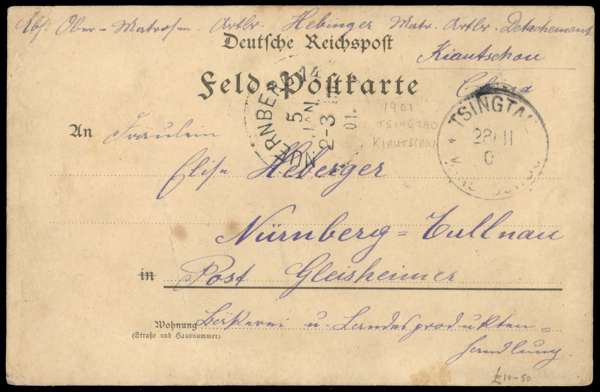 Abs. Ober-Matrosen-Artlr. Hebinger Matr. Artlr. Detachement
Deutsche Reichspost
Kiautschou
Feld-Postkarte
China
NUERNBERG 14
5 JAN.
2-3
01.
1901
TSINGTAO
KIAUTSCHOU
TSINGTAU
28/11
0
An Fräulein
Elise Heberger
Nürnberg=Tullnau
in Post Gleisheimer
Wohnung
(Straße und Hausnummer)
u. Landesprodukten-
handlung
£10-50